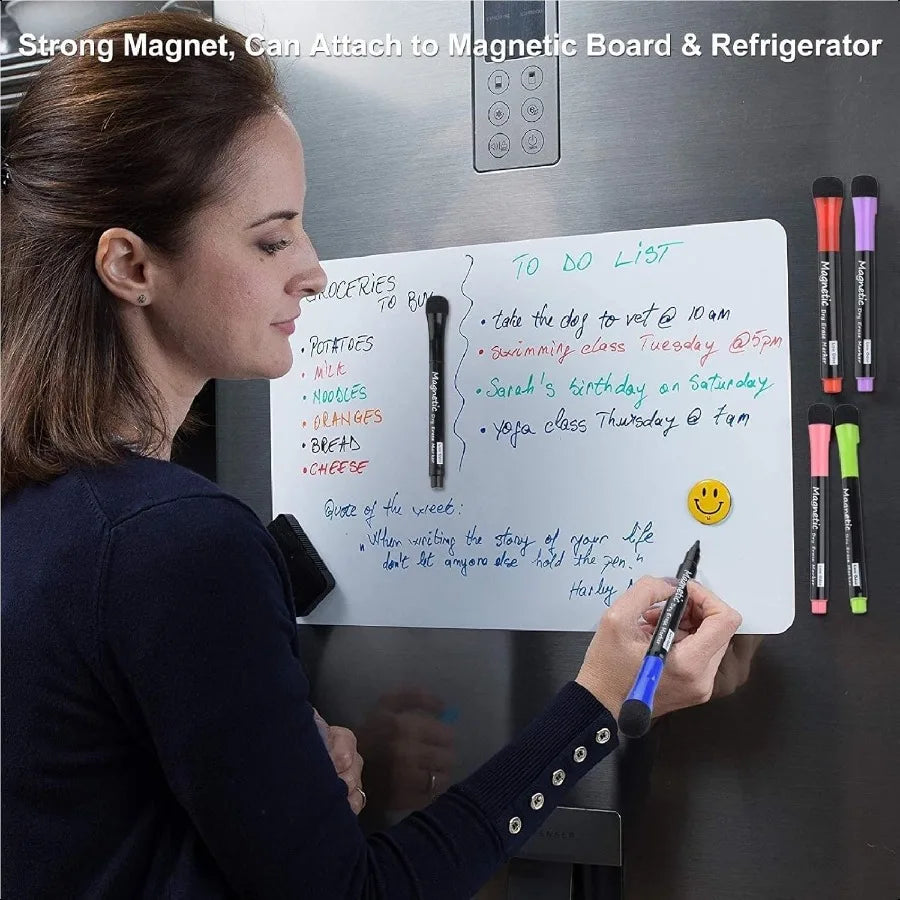 Strong Magnet, Can Attach to Magnetic Board & Refrigerator
GROCERIES
TO BUY
• POTATOES
• MILK
• NOODLES
• ORANGES
• BREAD
• CHEESE
TO DO LIST
• take the dog to vet @ 10 am
• swimming class Tuesday @ 5pm
• Sarah's birthday on Saturday
• yoga class Thursday @ 7am
Quote of the week:
"When writing the story of your life
don't let anyone else hold the pen."
Harley
Magnetic Dry Erase Marker
Magnetic Dry Erase Marker
Magnetic Dry Erase Marker
Magnetic Dry Erase Marker
Magnetic Dry Erase Marker
Magnetic Dry Erase Marker